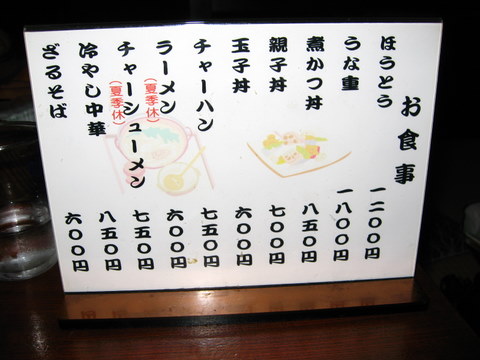 お食事
ほうとう 一二〇〇円
うな重 一八〇〇円
煮かつ丼 八五〇円
親子丼 七〇〇円
玉子丼 六〇〇円
チャーハン 七五〇円
ラーメン (夏季休) 六〇〇円
チャーシューメン (夏季休) 七五〇円
冷やし中華 八五〇円
ざるそば 六〇〇円